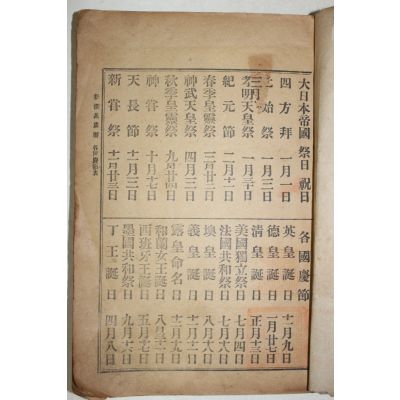 大日本帝國 祭日 祝日
四方拜 一月一日
元始祭 一月三日
孝明天皇祭 一月三十日
紀元節 二月十一日
春季皇靈祭 三月廿日
神武天皇祭 四月三日
秋季皇靈祭 九月廿四日
神嘗祭 十月十七日
天長節 十一月三日
新嘗祭 十一月廿三日
各國慶節
英皇誕日 十一月九日
德皇誕日 一月廿七日
清皇誕日 正月十三日
美國獨立祭 七月四日
法國共和祭 七月十四日
澳皇誕日 八月十八日
義皇誕日 十一月十一日
露皇命名日 十二月十九日
和蘭女王誕日 八月卅一日
西班牙王誕日 五月十七日
墨國共和祭 九月十六日
丁王誕日 四月八日